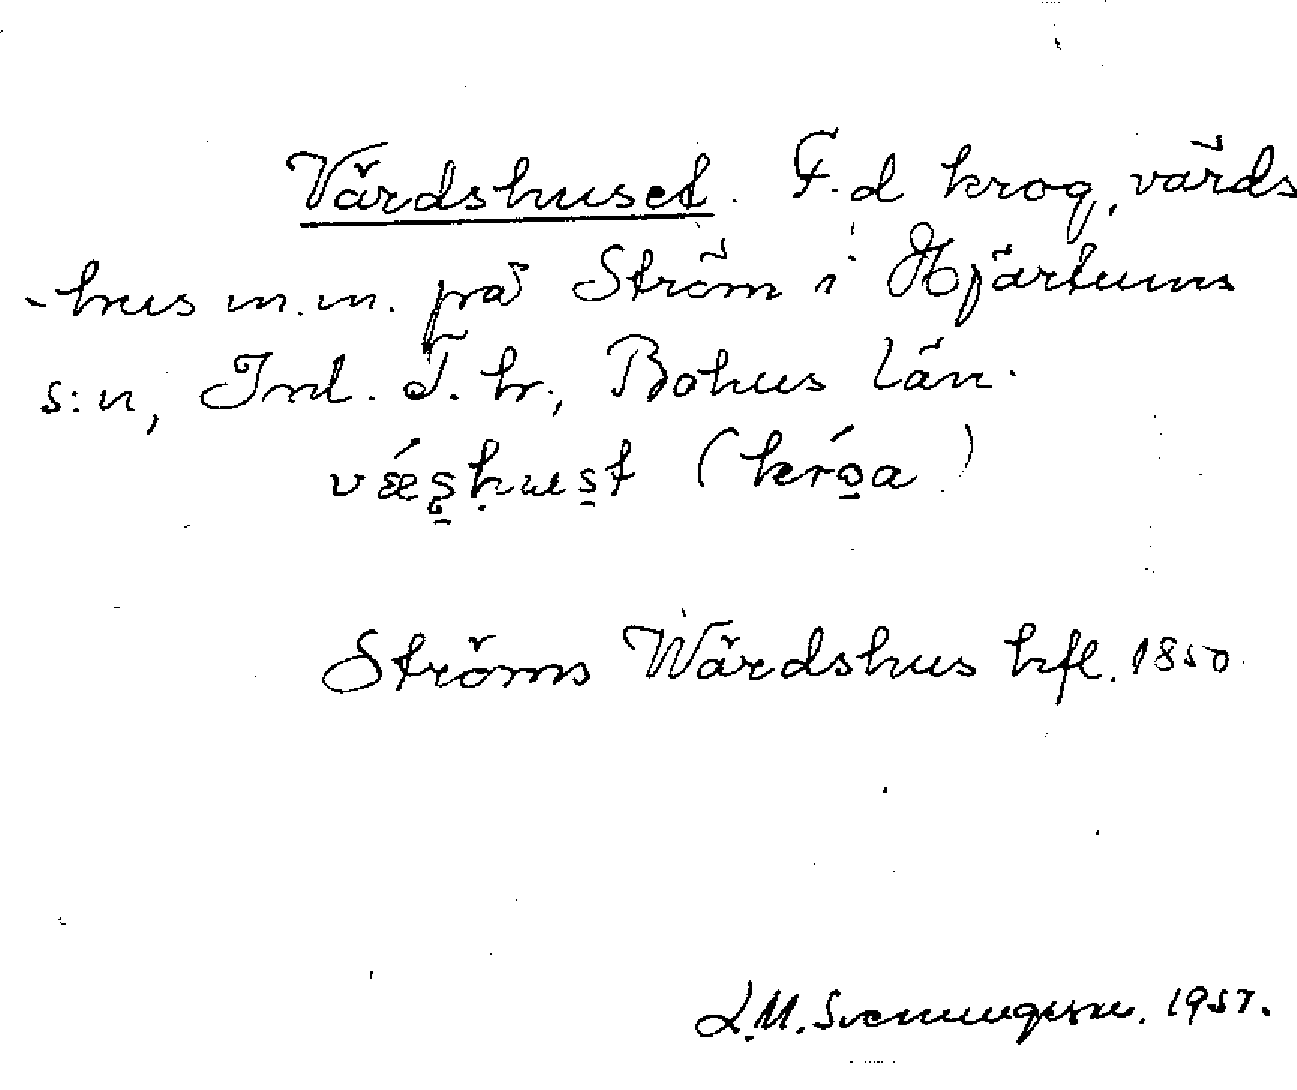 Värdshuset. F.d krog, värds
-hus m.m. på Ström i Hjärtums
s:n, Inl. T. hr., Bohus län.
(króa)
Ströms Wärdshus hfl. 1850
L.M. Svenungsson. 1957.